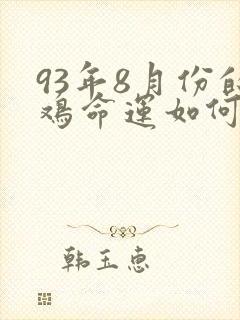 93年8月份的
鸡命运如何
韩玉惠